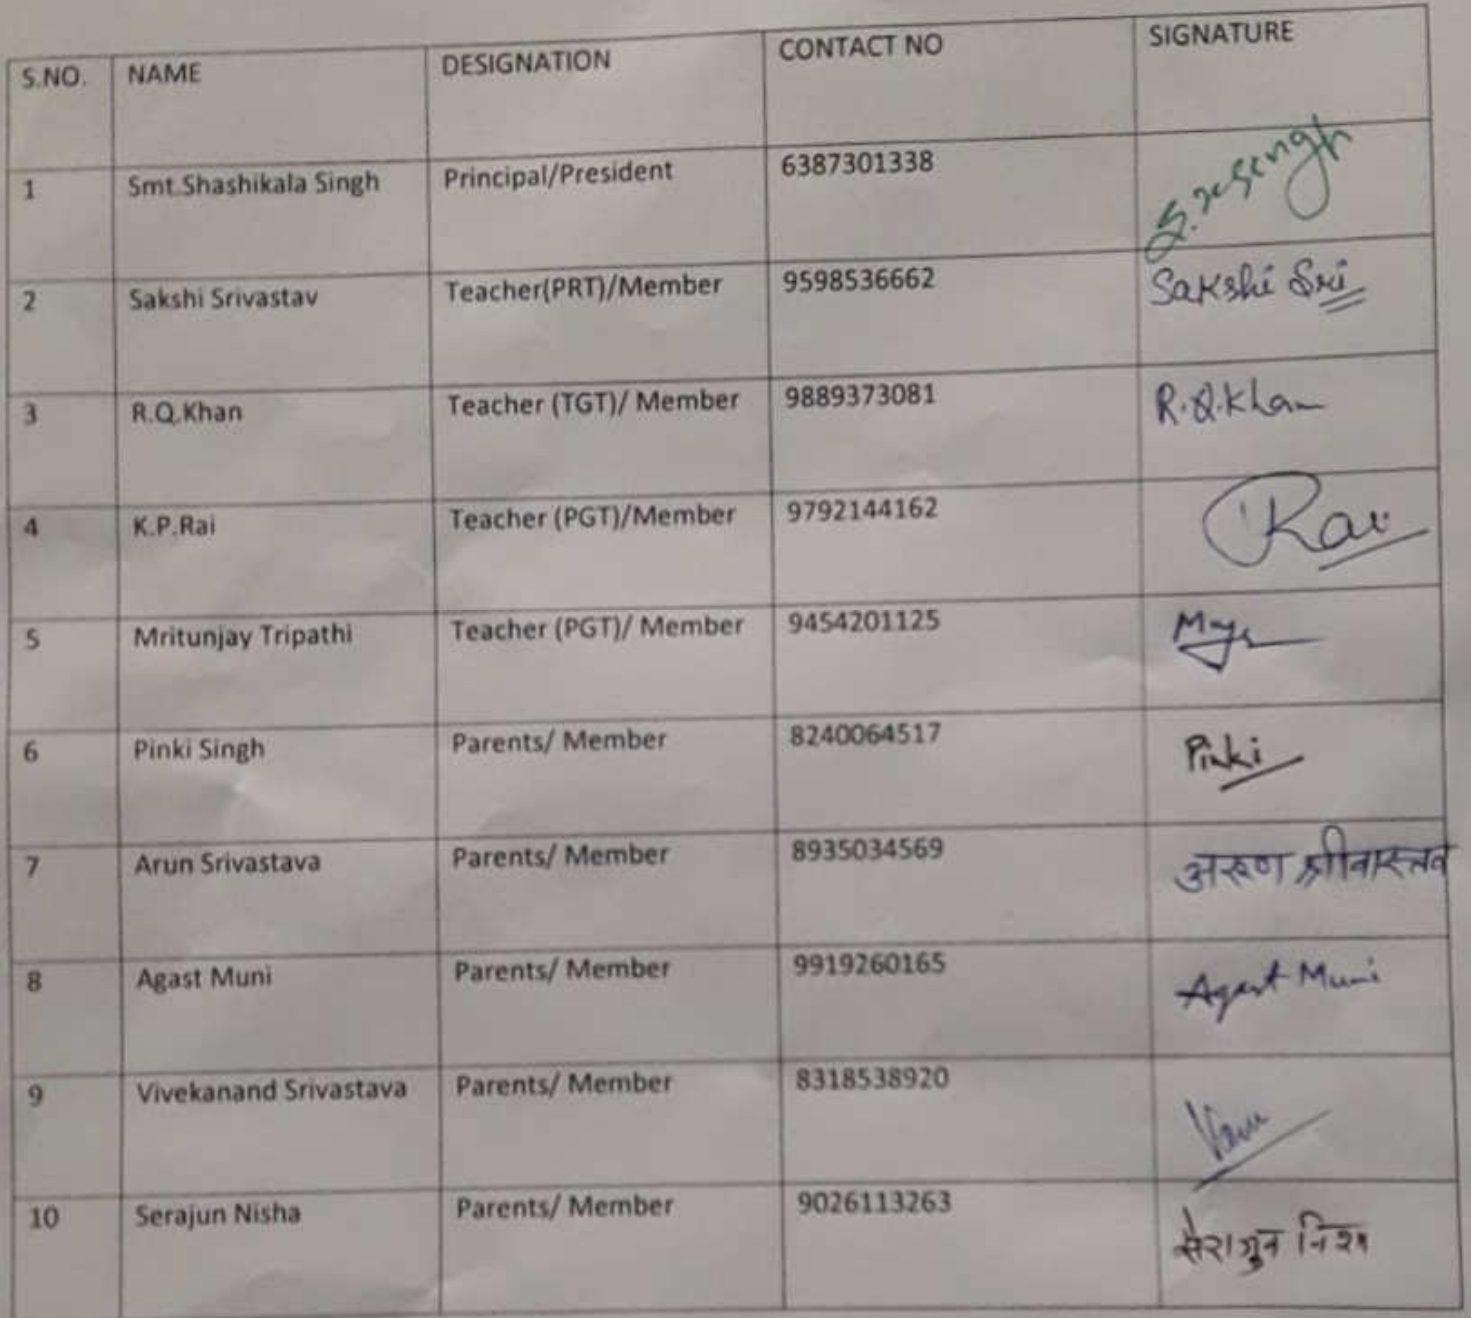 S.NO. NAME DESIGNATION CONTACT NO SIGNATURE
1 Smt.Shashikala Singh Principal/President 6387301338
2 Sakshi Srivastav Teacher(PRT)/Member 9598536662 Sakshi Sri
3 R.Q.Khan Teacher (TGT)/ Member 9889373081 R.Q.Khan
4 K.P.Rai Teacher (PGT)/Member 9792144162 Rai
5 Mritunjay Tripathi Teacher (PGT)/ Member 9454201125
6 Pinki Singh Parents/ Member 8240064517 Pinki
7 Arun Srivastava Parents/ Member 8935034569 अरुण श्रीवास्तव
8 Agast Muni Parents/ Member 9919260165 Agast Muni
9 Vivekanand Srivastava Parents/ Member 8318538920
10 Serajun Nisha Parents/ Member 9026113263